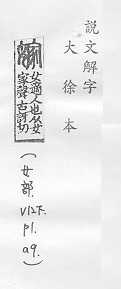 說文解字
大徐本
嫁
女適人也从女
家聲古訝切
(女部.V12下.p1.a9.)